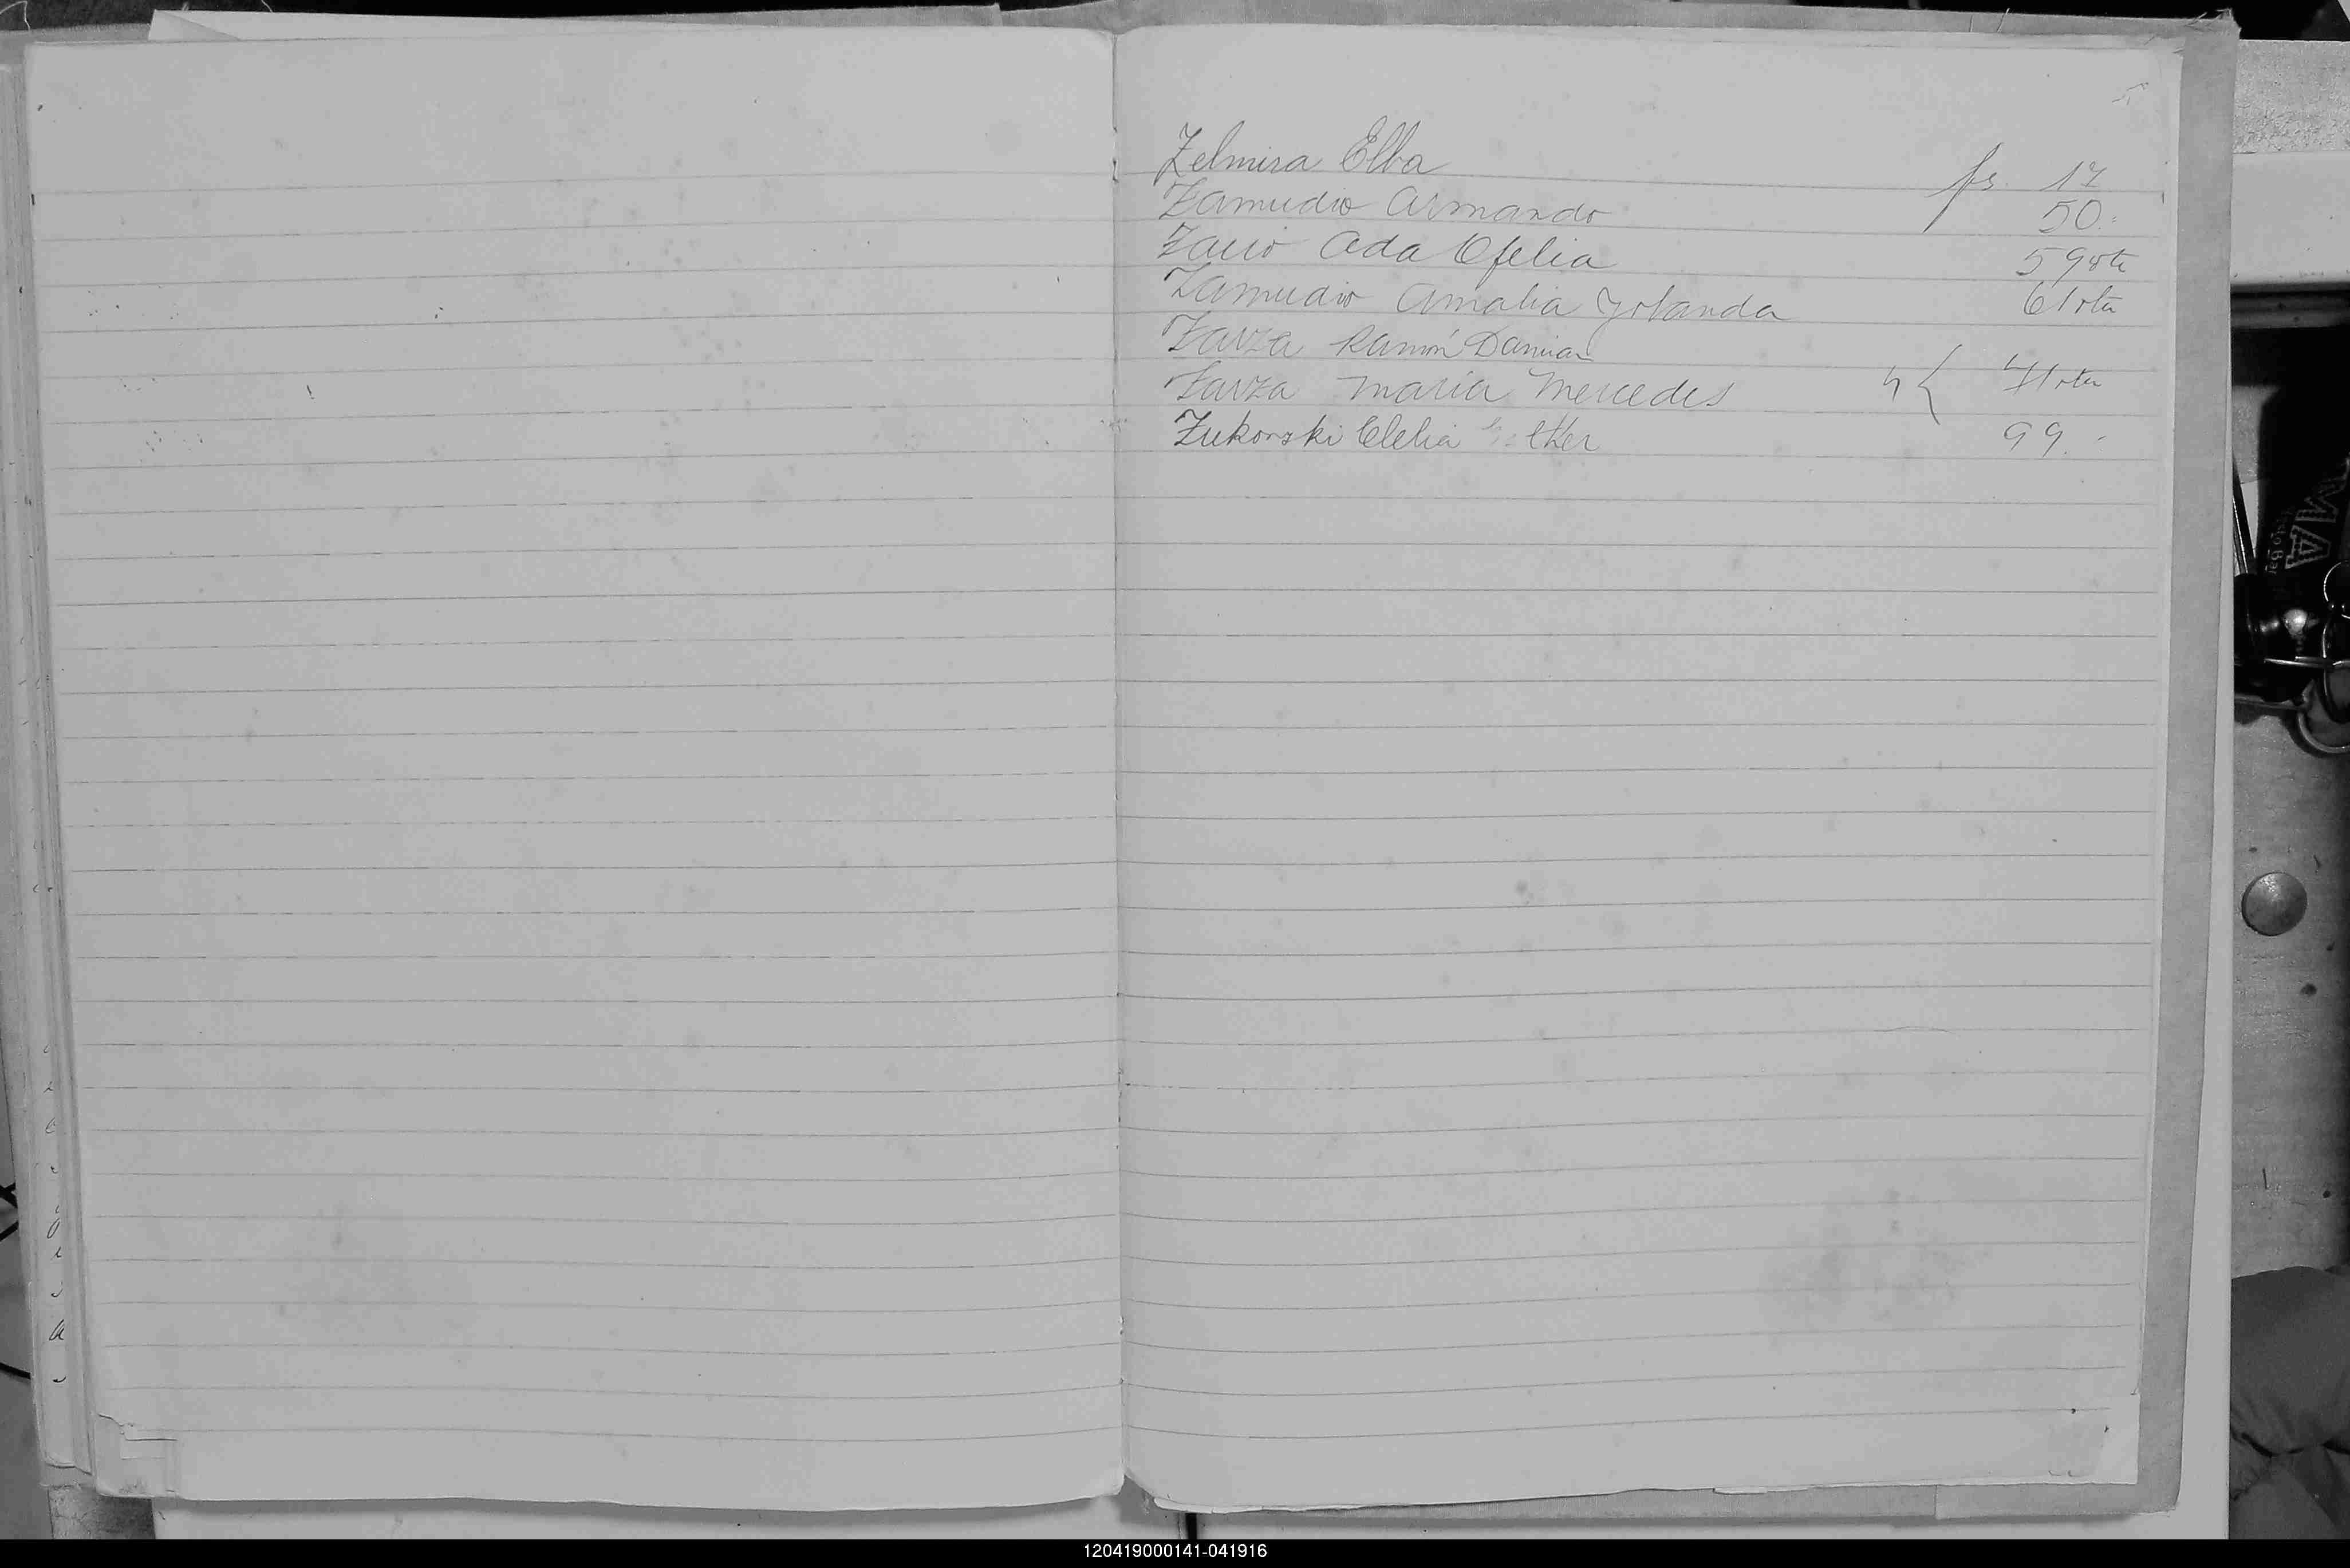 Zelmira Elba fs. 17
Zamudio Armando 50.
Ada Ofelia 59 vta
Zamudio Amalia Yolanda 61 vta
Zarza Ramón Damian
Zarza Maria Mercedes 71 vta
Zukorski Clelia Esther 99.
120419000141-041916